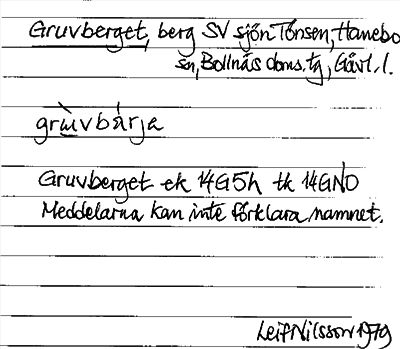 Gruvberget, berg SV sjön Tönsen, Hanebo
sn, Bollnäs doms. tg, Gävl. l.
grùvbárja
Gruvberget ek 14G5h tk 14GNO
Meddelarna kan inte förklara namnet.
Leif Nilsson 1979